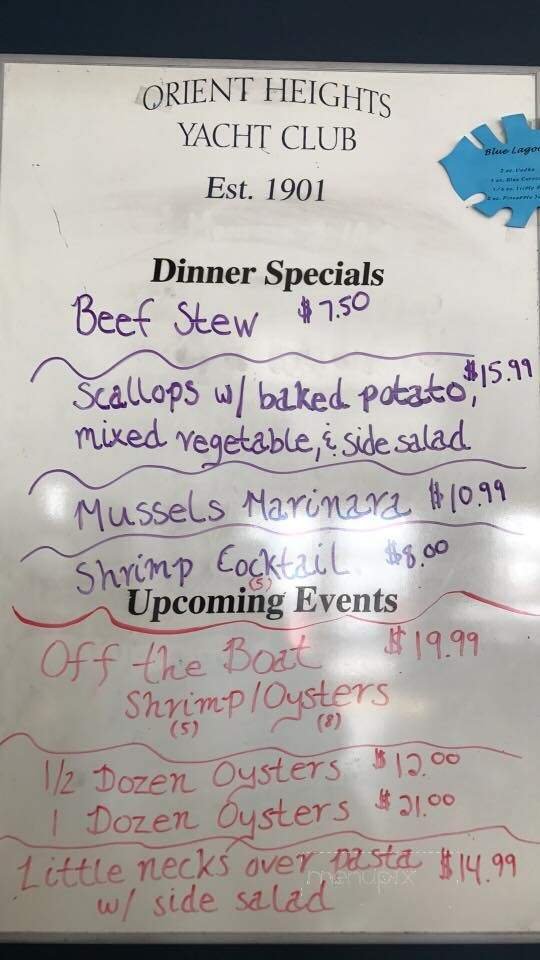 ORIENT HEIGHTS
YACHT CLUB
Est. 1901
Blue Lagoo
2 oz. Vodka
Dinner Specials
Beef Stew $7.50
Scallops w/ baked potato, $15.99
mixed vegetable, & side salad
Mussels Marinara $10.99
Shrimp Cocktail $8.00
(5)
Upcoming Events
Off the Boat $19.99
Shrimp/Oysters
(5) (8)
1/2 Dozen Oysters $12.00
1 Dozen Oysters $21.00
Little necks over pasta $14.99
w/ side salad
menupix